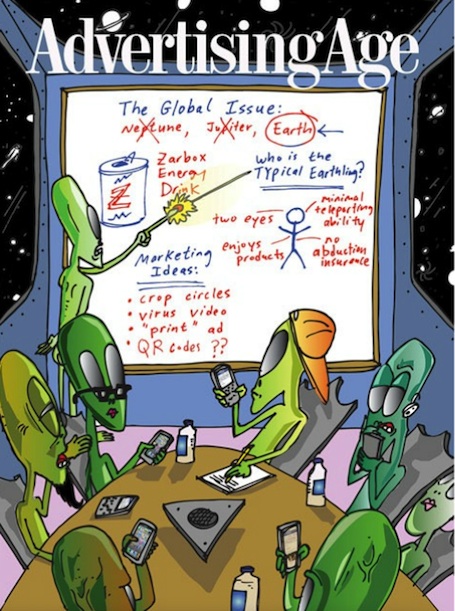 AdvertisingAge
The Global Issue:
Neptune, Jupiter, Earth
Zarbox
Energy
Drink
Z
who is the
Typical Earthling?
two eyes
minimal
teleporting
ability
enjoys
products
no
abduction
insurance
Marketing
Ideas:
• crop circles
• virus video
• "print" ad
• QR codes ??